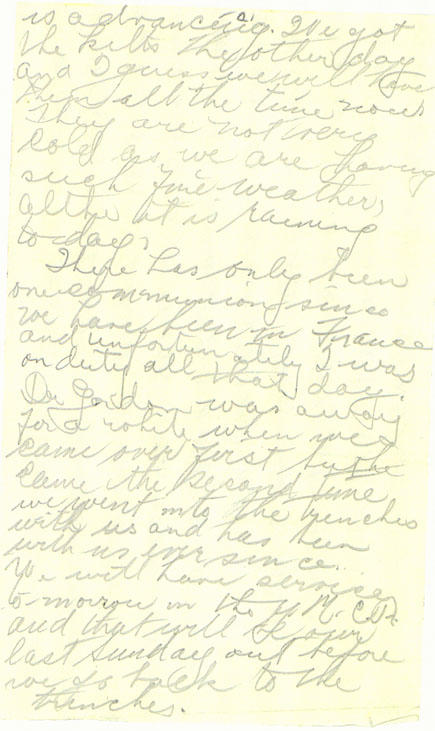 is advancing. We got
the kilts the other day
and I guess we will have
them all the time now.
They are not very
cold as we are having
such fine weather,
altho it is raining
today.
There has only been
one communion since
we have been in France
and unfortunately I was
on duty all that day.
Dr Gordon was away
for a while when we
came over first but he
came the second time
we went into the trenches
with us and has been
with us ever since.
We will have services
tomorrow in the Y.M.C.A.
and that will be our
last Sunday out before
we go back to the
trenches.